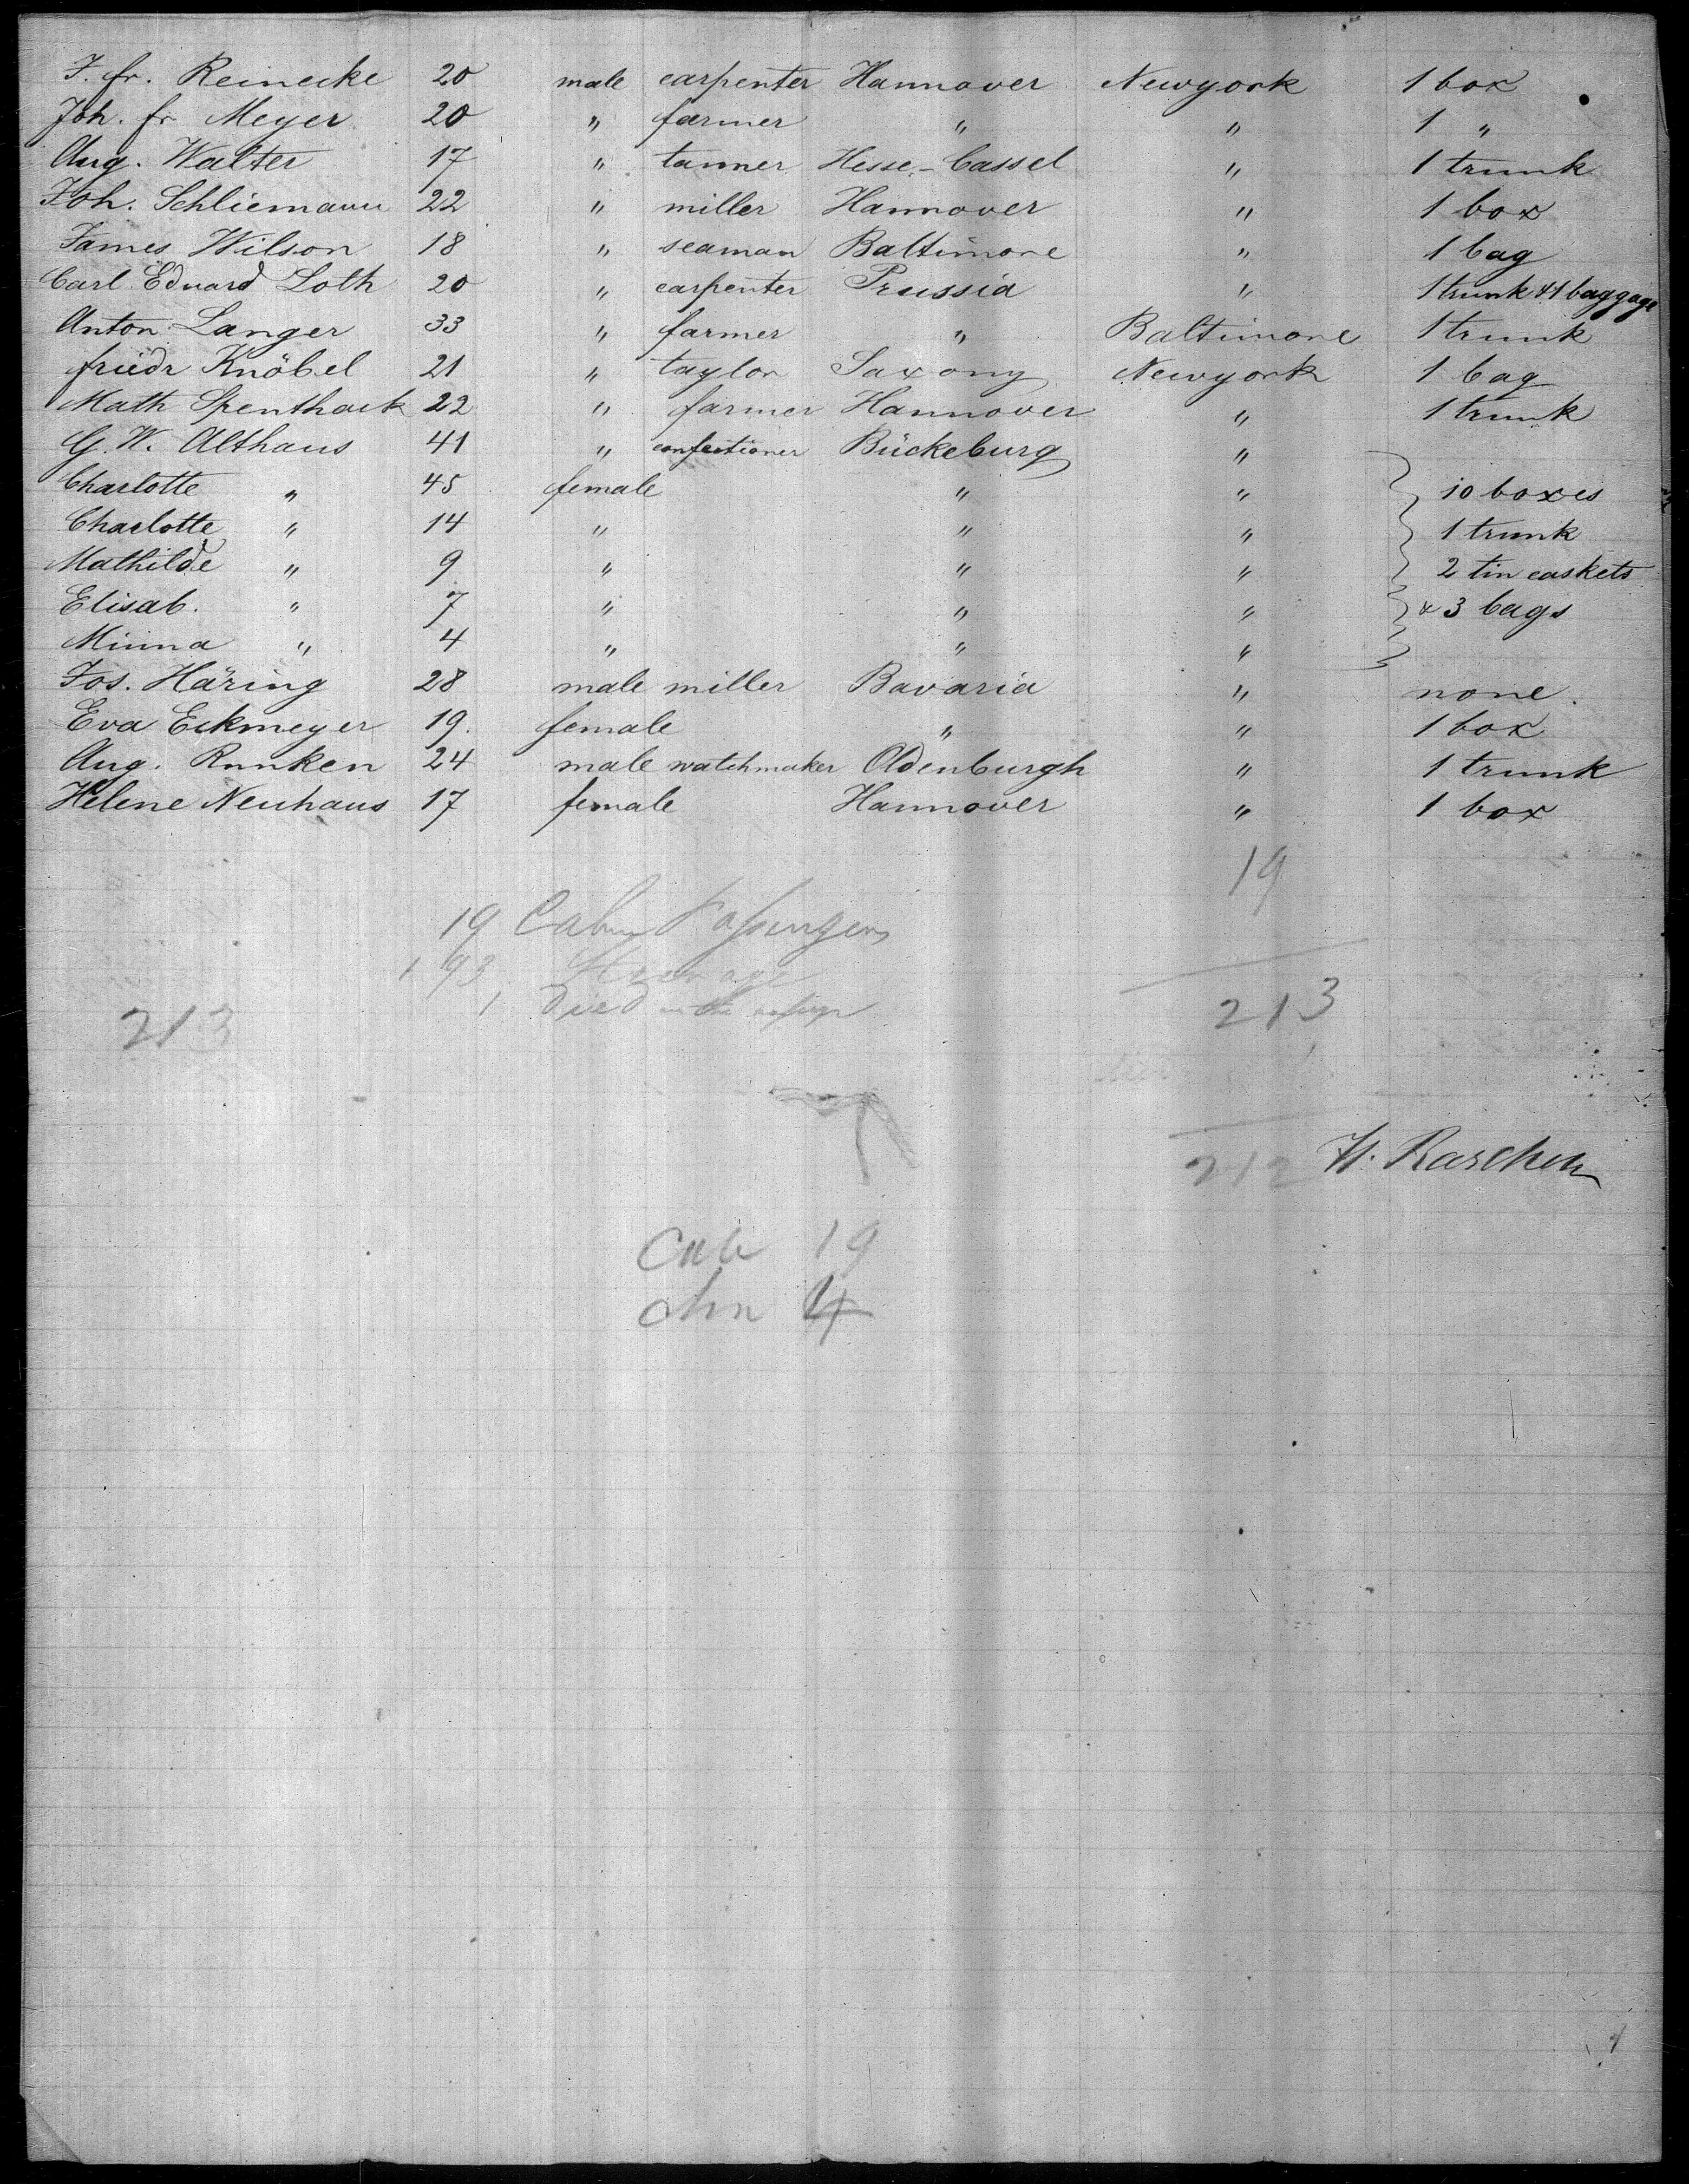 J. fr. Reinecke 20 male carpenter Hannover Newyork 1 box
Joh. fr Meyer 20 " farmer " " 1 "
Aug. Walter 17 " tanner Hesse-Cassel " 1 trunk
Joh. Schliemann 22 " miller Hannover " 1 box
James Wilson 18 " seaman Baltimore " 1 bag
Carl Eduard Loth 20 " carpenter Prussia " 1 trunk & 1 baggage
Anton Langer 33 " farmer " Baltimore 1 trunk
friedr Knöbel 21 " taylor Saxony Newyork 1 bag
Math Spenthack 22 " farmer Hannover " 1 trunk
G. W. Althaus 41 " confectioner Bückeburg "
Charlotte " 45 female " " 10 boxes
Charlotte " 14 " " " 1 trunk
Mathilde " 9 " " " 2 tin caskets
Elisab. " 7 " " " & 3 bags
Minna " 4 " " "
Jos. Häring 28 male miller Bavaria " none.
Eva Eckmeyer 19. female " " 1 box
Aug. Runken 24 male watchmaker Oldenburgh " 1 trunk
Helene Neuhaus 17 female Hannover " 1 box
19
19 Cabin Passengers
193 Steerage
1 Died on the
213 213
212 H. Raschen
Cab 19
4